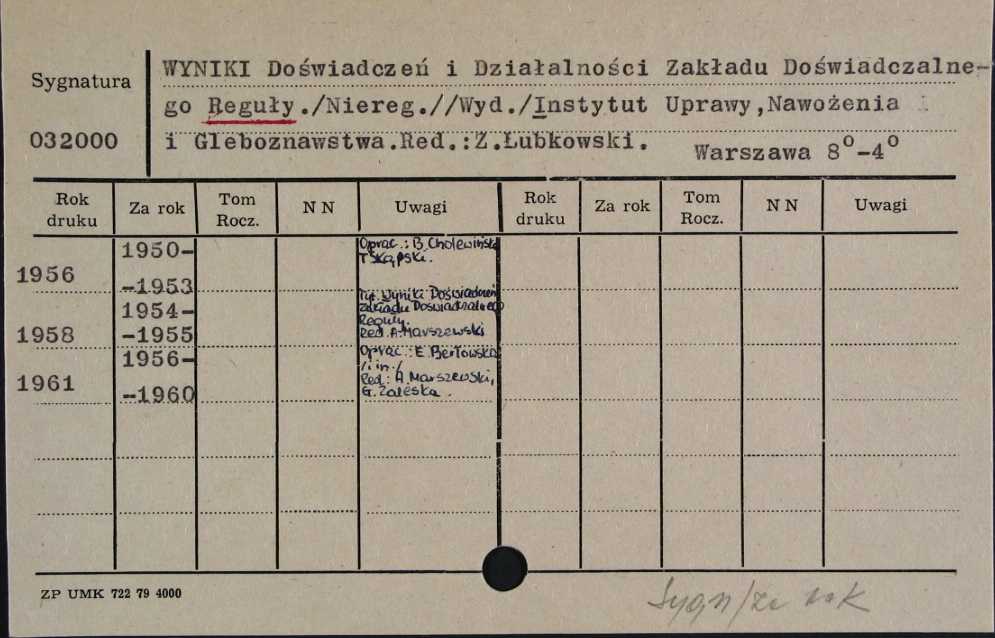 Sygnatura
032000
WYNIKI Doświadczeń i Działalności Zakładu Doświadczalne-
go Reguły./Niereg.//Wyd./Instytut Uprawy,Nawożenia i
i Gleboznawstwa.Red.:Z.Łubkowski. Warszawa 8°-4°
Rok druku Za rok Tom Rocz. N N Uwagi Rok druku Za rok Tom Rocz. N N Uwagi
1956 1950-
-1953 Oprac.: B. Cholewińska
T Skąpski.
1958 1954-
-1955 Tyt. Wyniki Doświadczeń
Zakładu Doświadczalnego
Reguły.
Red. A. Marszewski
1961 1956-
-1960 Oprac.: E. Bertowska
/i in./
Red.: A. Marszewski,
G. Zaleska.
ZP UMK 722 79 4000
Sygn/za rok